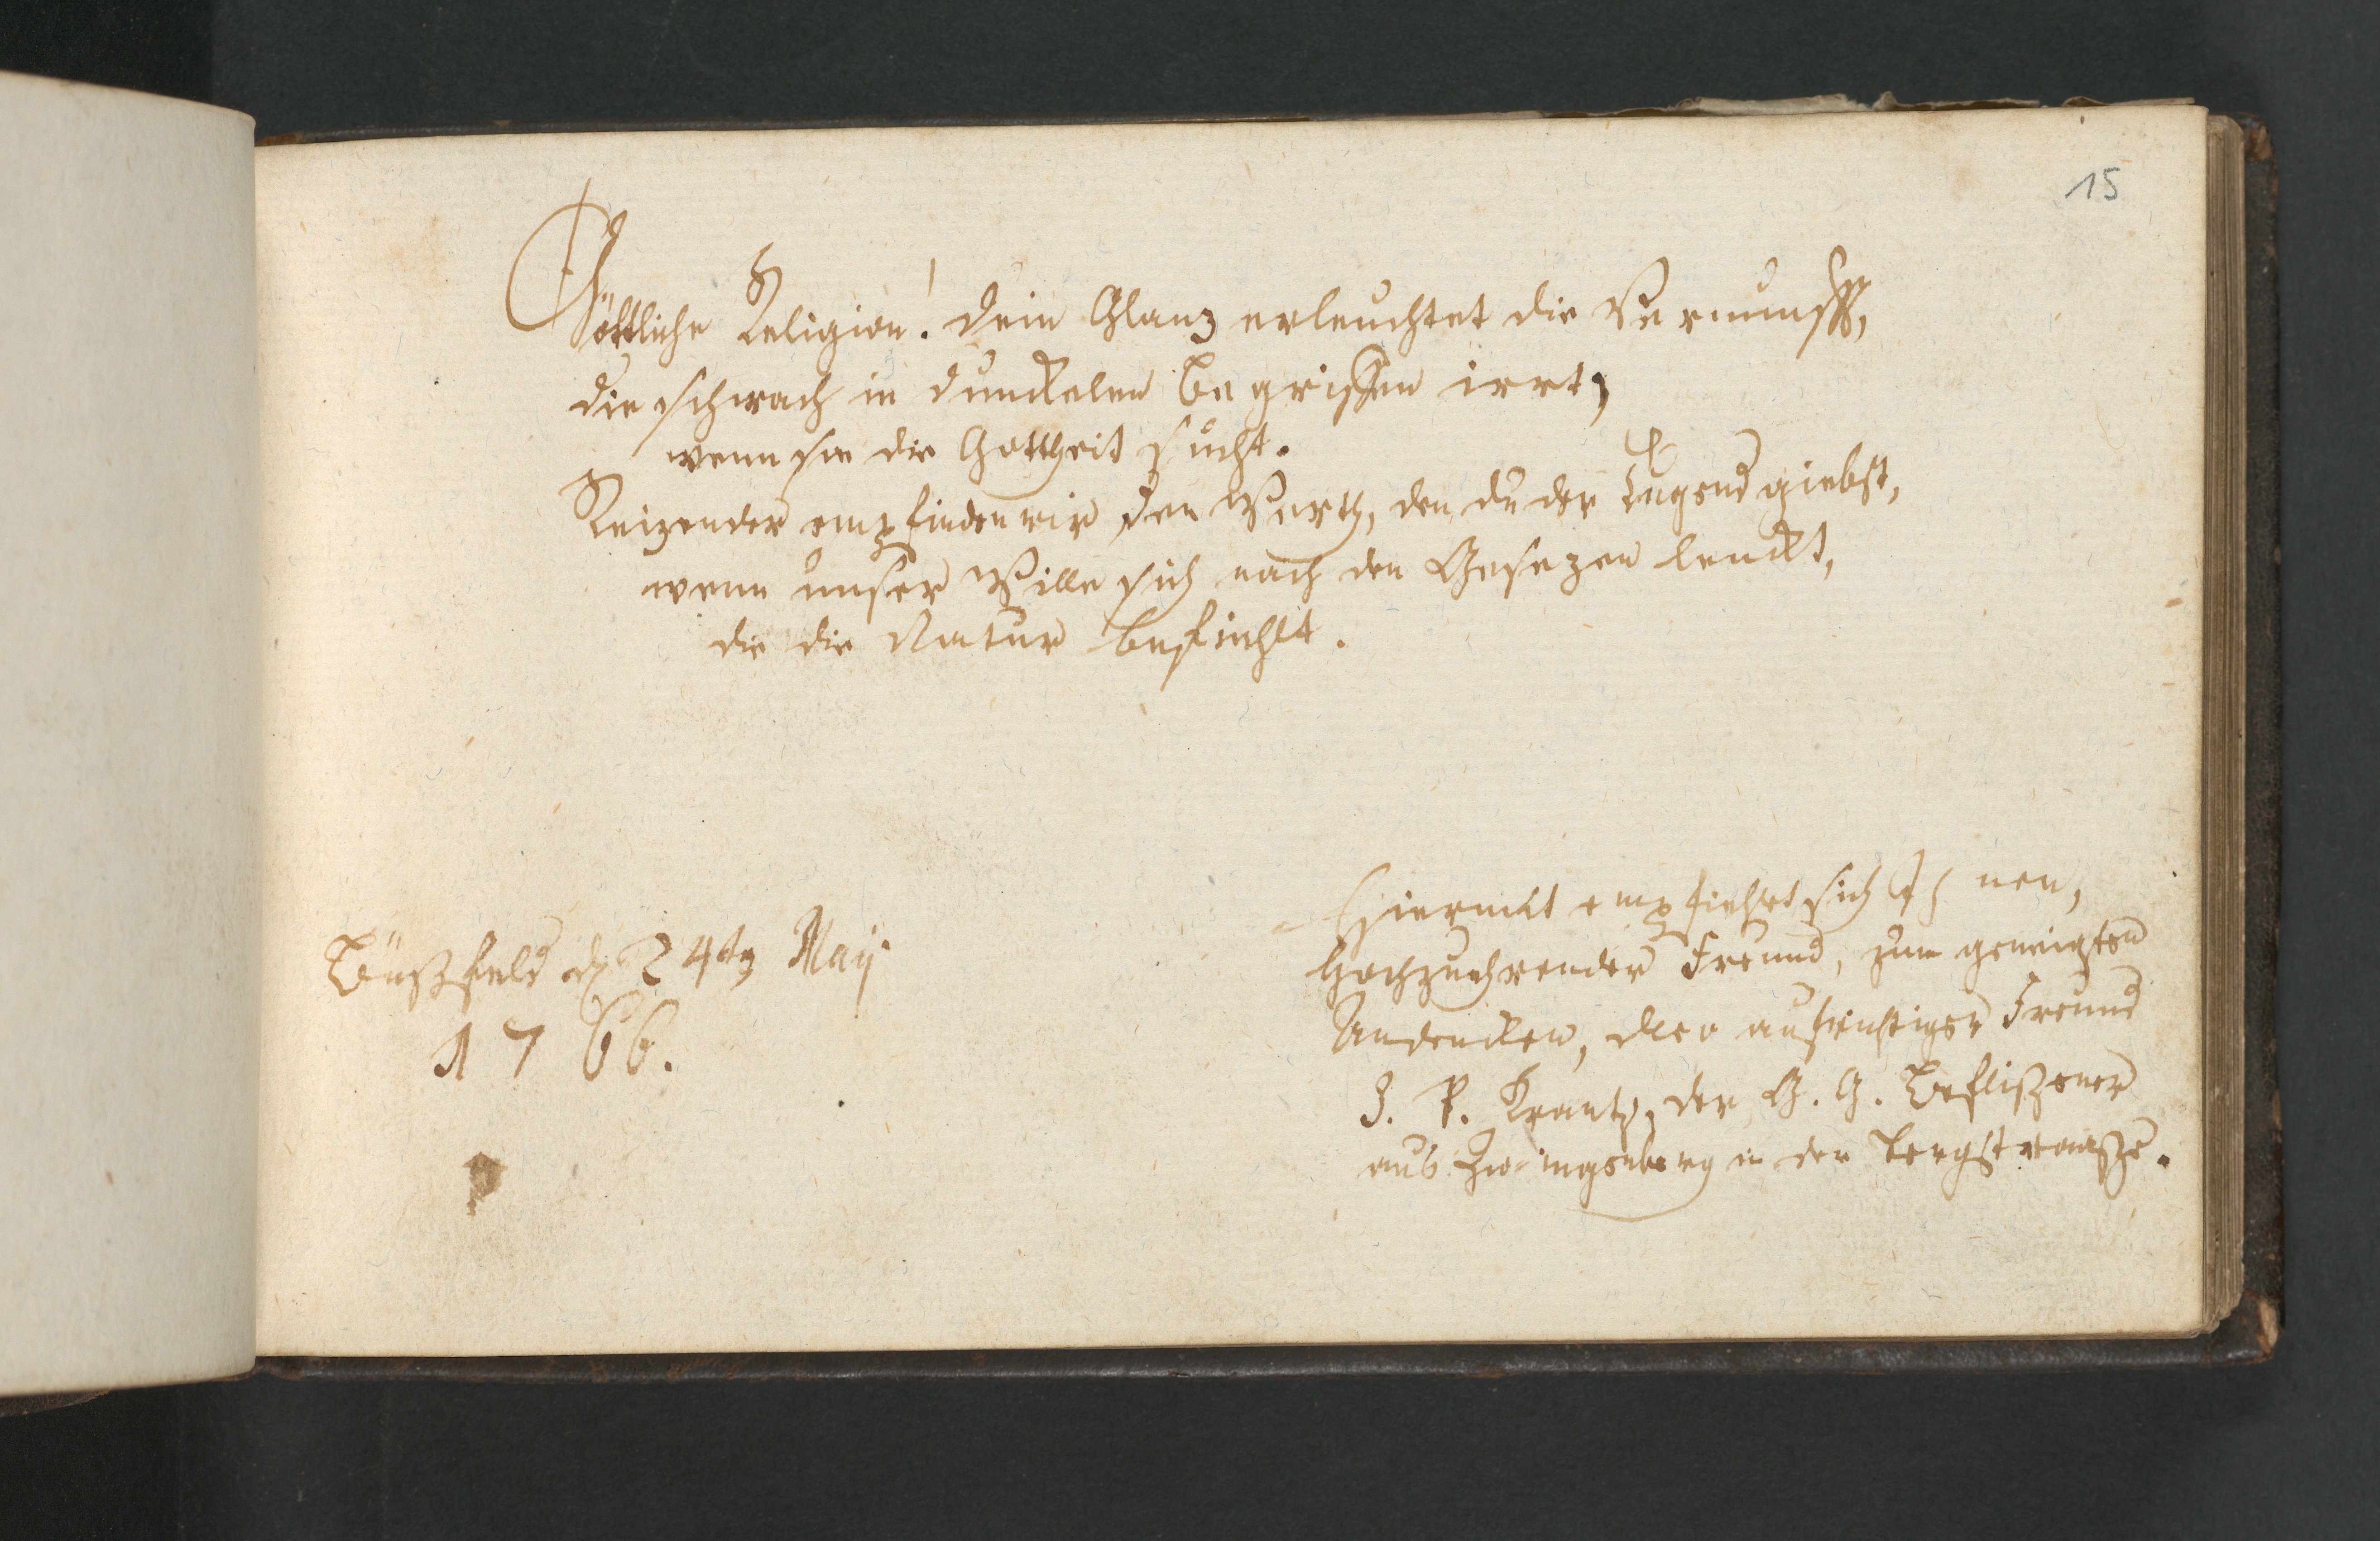 15
Göttliche Religion! dein Glanz erleuchtet die Vernunfft,
die schwach in dunckelen Begriffen irrt,
wenn sie die Gottheit sucht.
Reizender empfinden wir den Werth, den du der Tugend giebst,
wenn unser Wille sich nach den Gesezen lenckt,
die die Natur befiehlt.
Büßfeld d 24ten Maij
1766.
Hiermit empfiehlet sich Ihnen,
Hochzuehrender Freund, zum geneigten
Andencken, dero aufrichtiger Freund
J. P. Krantz, der G. G. Beflißener
aus Zwingenberg in der Bergstraaße.